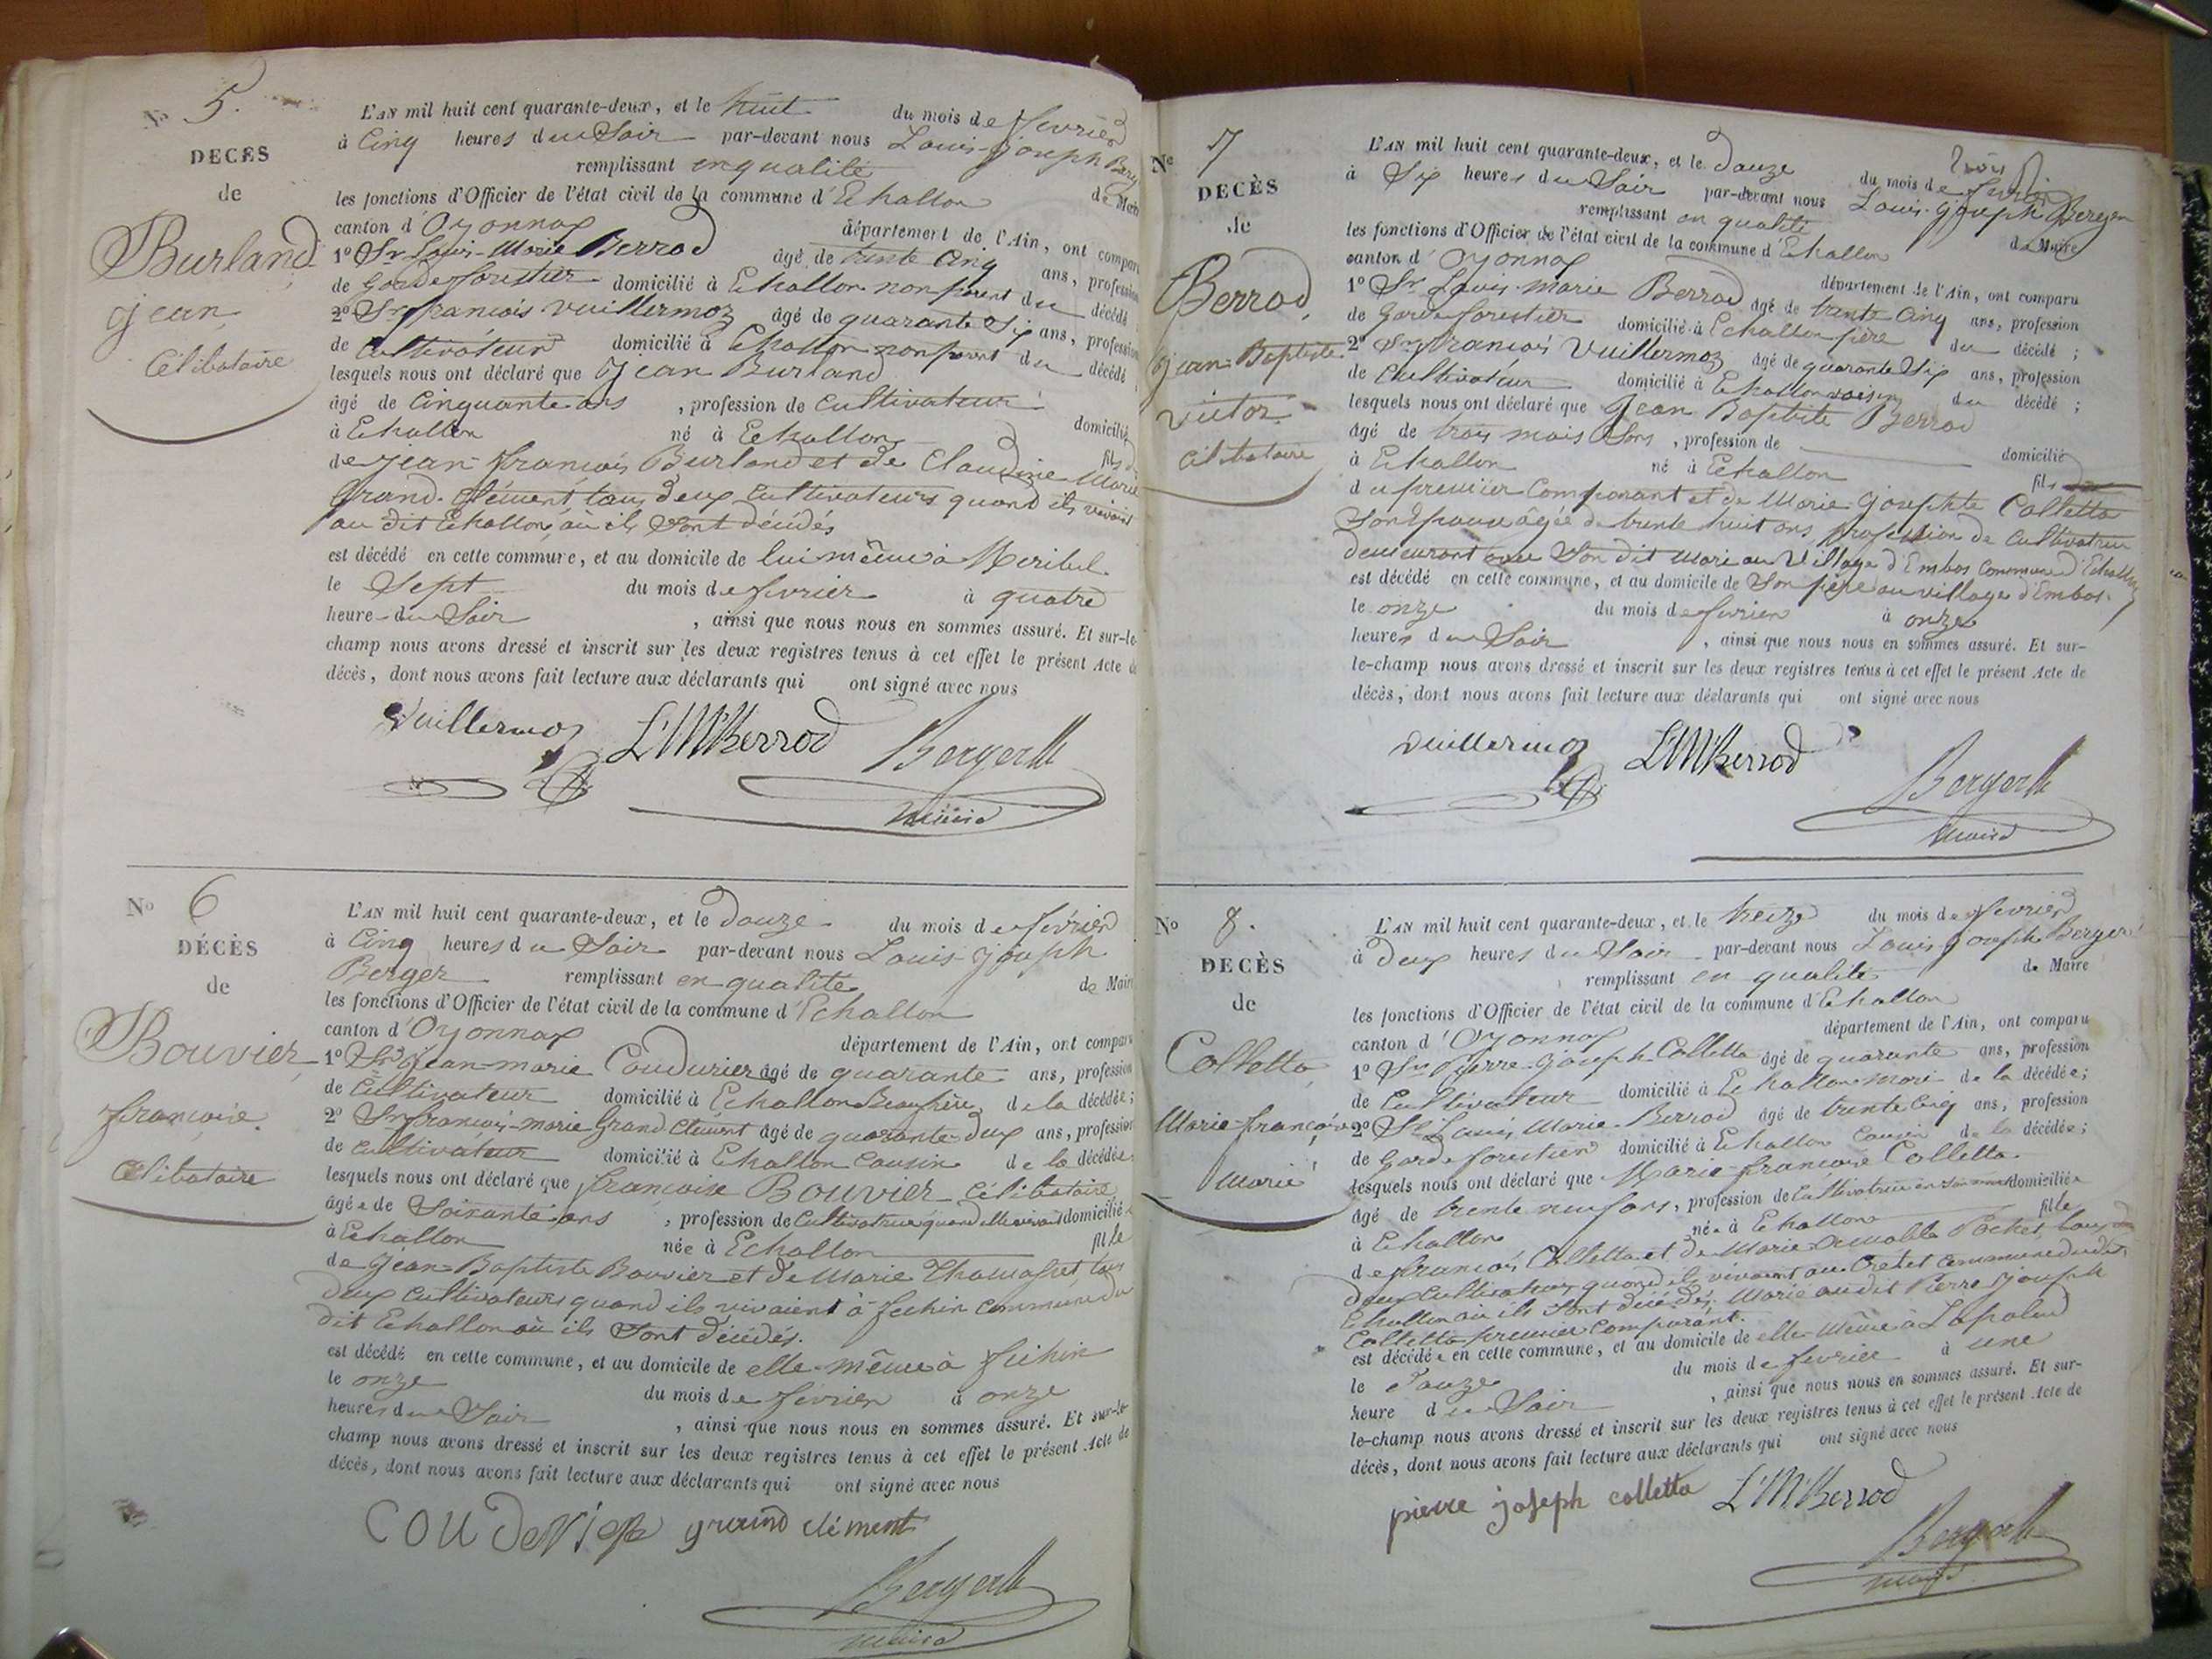 No 5.
DECÈS
de
Burland
jean
Célibataire
L'AN mil huit cent quarante-deux, et le huit du mois de fevrier
à Cinq heures du Soir par-devant nous Louis-joseph
remplissant en qualité de Maire
les fonctions d'Officier de l'état civil de la commune d'Echallon
canton d'Oyonnax département de l'Ain, ont comparu
1º Sr Louis-Marie Berrod âgé de trente Cinq ans, profession
de Garde forestier domicilié à Echallon non parent du décédé
2º Sr françois Vuillermoz âgé de quarante Six ans, profession
de Cultivateur domicilié à Echallon non parent du décédé
lesquels nous ont déclaré que Jean Burland
âgé de Cinquante ans , profession de Cultivateur domicilié
à Echallon né à Echallon fils
de Jean-françois Burland et de Claudine Marie
Grand-Clément tous deux Cultivateurs quand ils vivaient
au dit Echallon où ils Sont décédés
est décédé en cette commune, et au domicile de lui même à Meribel
le Sept du mois de fevrier à quatre
heure du Soir , ainsi que nous nous en sommes assuré. Et sur-le-
champ nous avons dressé et inscrit sur les deux registres tenus à cet effet le présent Acte de
décès, dont nous avons fait lecture aux déclarants qui ont signé avec nous
Vuillermoz L'M'Berrod Berger
Maire
No 6
DÉCÈS
de
Bouvier
françoise
Célibataire
L'AN mil huit cent quarante-deux, et le douze du mois de février
à Cinq heures du Soir par-devant nous Louis-joseph
Berger remplissant en qualité de Maire
les fonctions d'Officier de l'état civil de la commune d'Echallon
canton d'Oyonnax département de l'Ain, ont comparu
1º Sr Jean-marie Coudurier âgé de quarante ans, profession
de Cultivateur domicilié à Echallon Beaufrère de la décédée;
2º Sr françois-marie Grand Clément âgé de quarante-deux ans, profession
de cultivateur domicilié à Echallon Cousin de la décédée
lesquels nous ont déclaré que françoise Bouvier Célibataire
âgée de Soixante ans , profession de Cultivatrice quand elle vivait domiciliée
à Echallon née à Echallon fille
de Jean-Baptiste Bouvier et de Marie tous
deux Cultivateurs quand ils vivaient à fechin commune du
dit Echallon où ils Sont décédés.
est décédé en cette commune, et au domicile de elle-même à fechin
le onze du mois de février à onze
heures du Soir , ainsi que nous nous en sommes assuré. Et sur-le-
champ nous avons dressé et inscrit sur les deux registres tenus à cet effet le présent Acte de
décès, dont nous avons fait lecture aux déclarants qui ont signé avec nous
grand clément
Berger
Maire
No 7
DECÈS
de
Berrod,
jean-Baptiste
victor
célibataire
L'AN mil huit cent quarante-deux, et le douze du mois de fevrier
à Six heures du Soir par-devant nous Louis-joseph Berger
remplissant en qualité de Maire
les fonctions d'Officier de l'état civil de la commune d'Echallon
canton d'Oyonnax département de l'Ain, ont comparu
1º Sr Louis-marie Berrod âgé de trente Cinq ans, profession
de Garde forestier domicilié à Echallon père du décédé ;
2º Sr françois Vuillermoz âgé de quarante Six ans, profession
de Cultivateur domicilié à Echallon voisin du décédé ;
lesquels nous ont déclaré que Jean Baptiste Berrod
âgé de trois mois , profession de domicilié
à Echallon né à Echallon fils
du premier Comparant et de Marie-josephte Colletta
Son Epouse âgée de trente huit ans, profession de Cultivatrice
demeurant avec Son dit Mari au Village d'Embos Commune d'Echallon
est décédé en cette commune, et au domicile de Son père au village d'Embos.
le onze du mois de fevrier à onze
heures du Soir , ainsi que nous nous en sommes assuré. Et sur-
le-champ nous avons dressé et inscrit sur les deux registres tenus à cet effet le présent Acte de
décès, dont nous avons fait lecture aux déclarants qui ont signé avec nous
Vuillermoz L'M'Berrod
Berger
Maire
No 8.
DECÈS
de
Colletta
Marie-françoise
Marié
L'AN mil huit cent quarante-deux, et le treize du mois de fevrier
à deux heures du Soir par-devant nous Louis-joseph Berger
remplissant en qualité de Maire
les fonctions d'Officier de l'état civil de la commune d'Echallon
canton d'Oyonnax département de l'Ain, ont comparu
1º Sr Pierre-joseph Colletta âgé de quarante ans, profession
de Cultivateur domicilié à Echallon Mari de la décédée;
2º Sr Louis Marie-Berrod âgé de trente Cinq ans, profession
de Garde forestier domicilié à Echallon Cousin de la décédée;
lesquels nous ont déclaré que Marie-françoise Colletta
âgé de trente neuf ans, profession de Cultivatrice domiciliée
à Echallon née à Echallon fille
de françois Colletta et de Marie tous
deux Cultivateurs quand ils vivaient au Crêtet Commune du dit
Echallon où ils Sont décédés, Marié au dit Pierre joseph
Colletta premier Comparant.
est décédée en cette commune, et au domicile de elle-Même à Lapalud
le douze du mois de fevrier à une
heure du Soir , ainsi que nous nous en sommes assuré. Et sur-
le-champ nous avons dressé et inscrit sur les deux registres tenus à cet effet le présent Acte de
décès, dont nous avons fait lecture aux déclarants qui ont signé avec nous
pierre joseph colletta L'M'Berrod
Berger
Maire